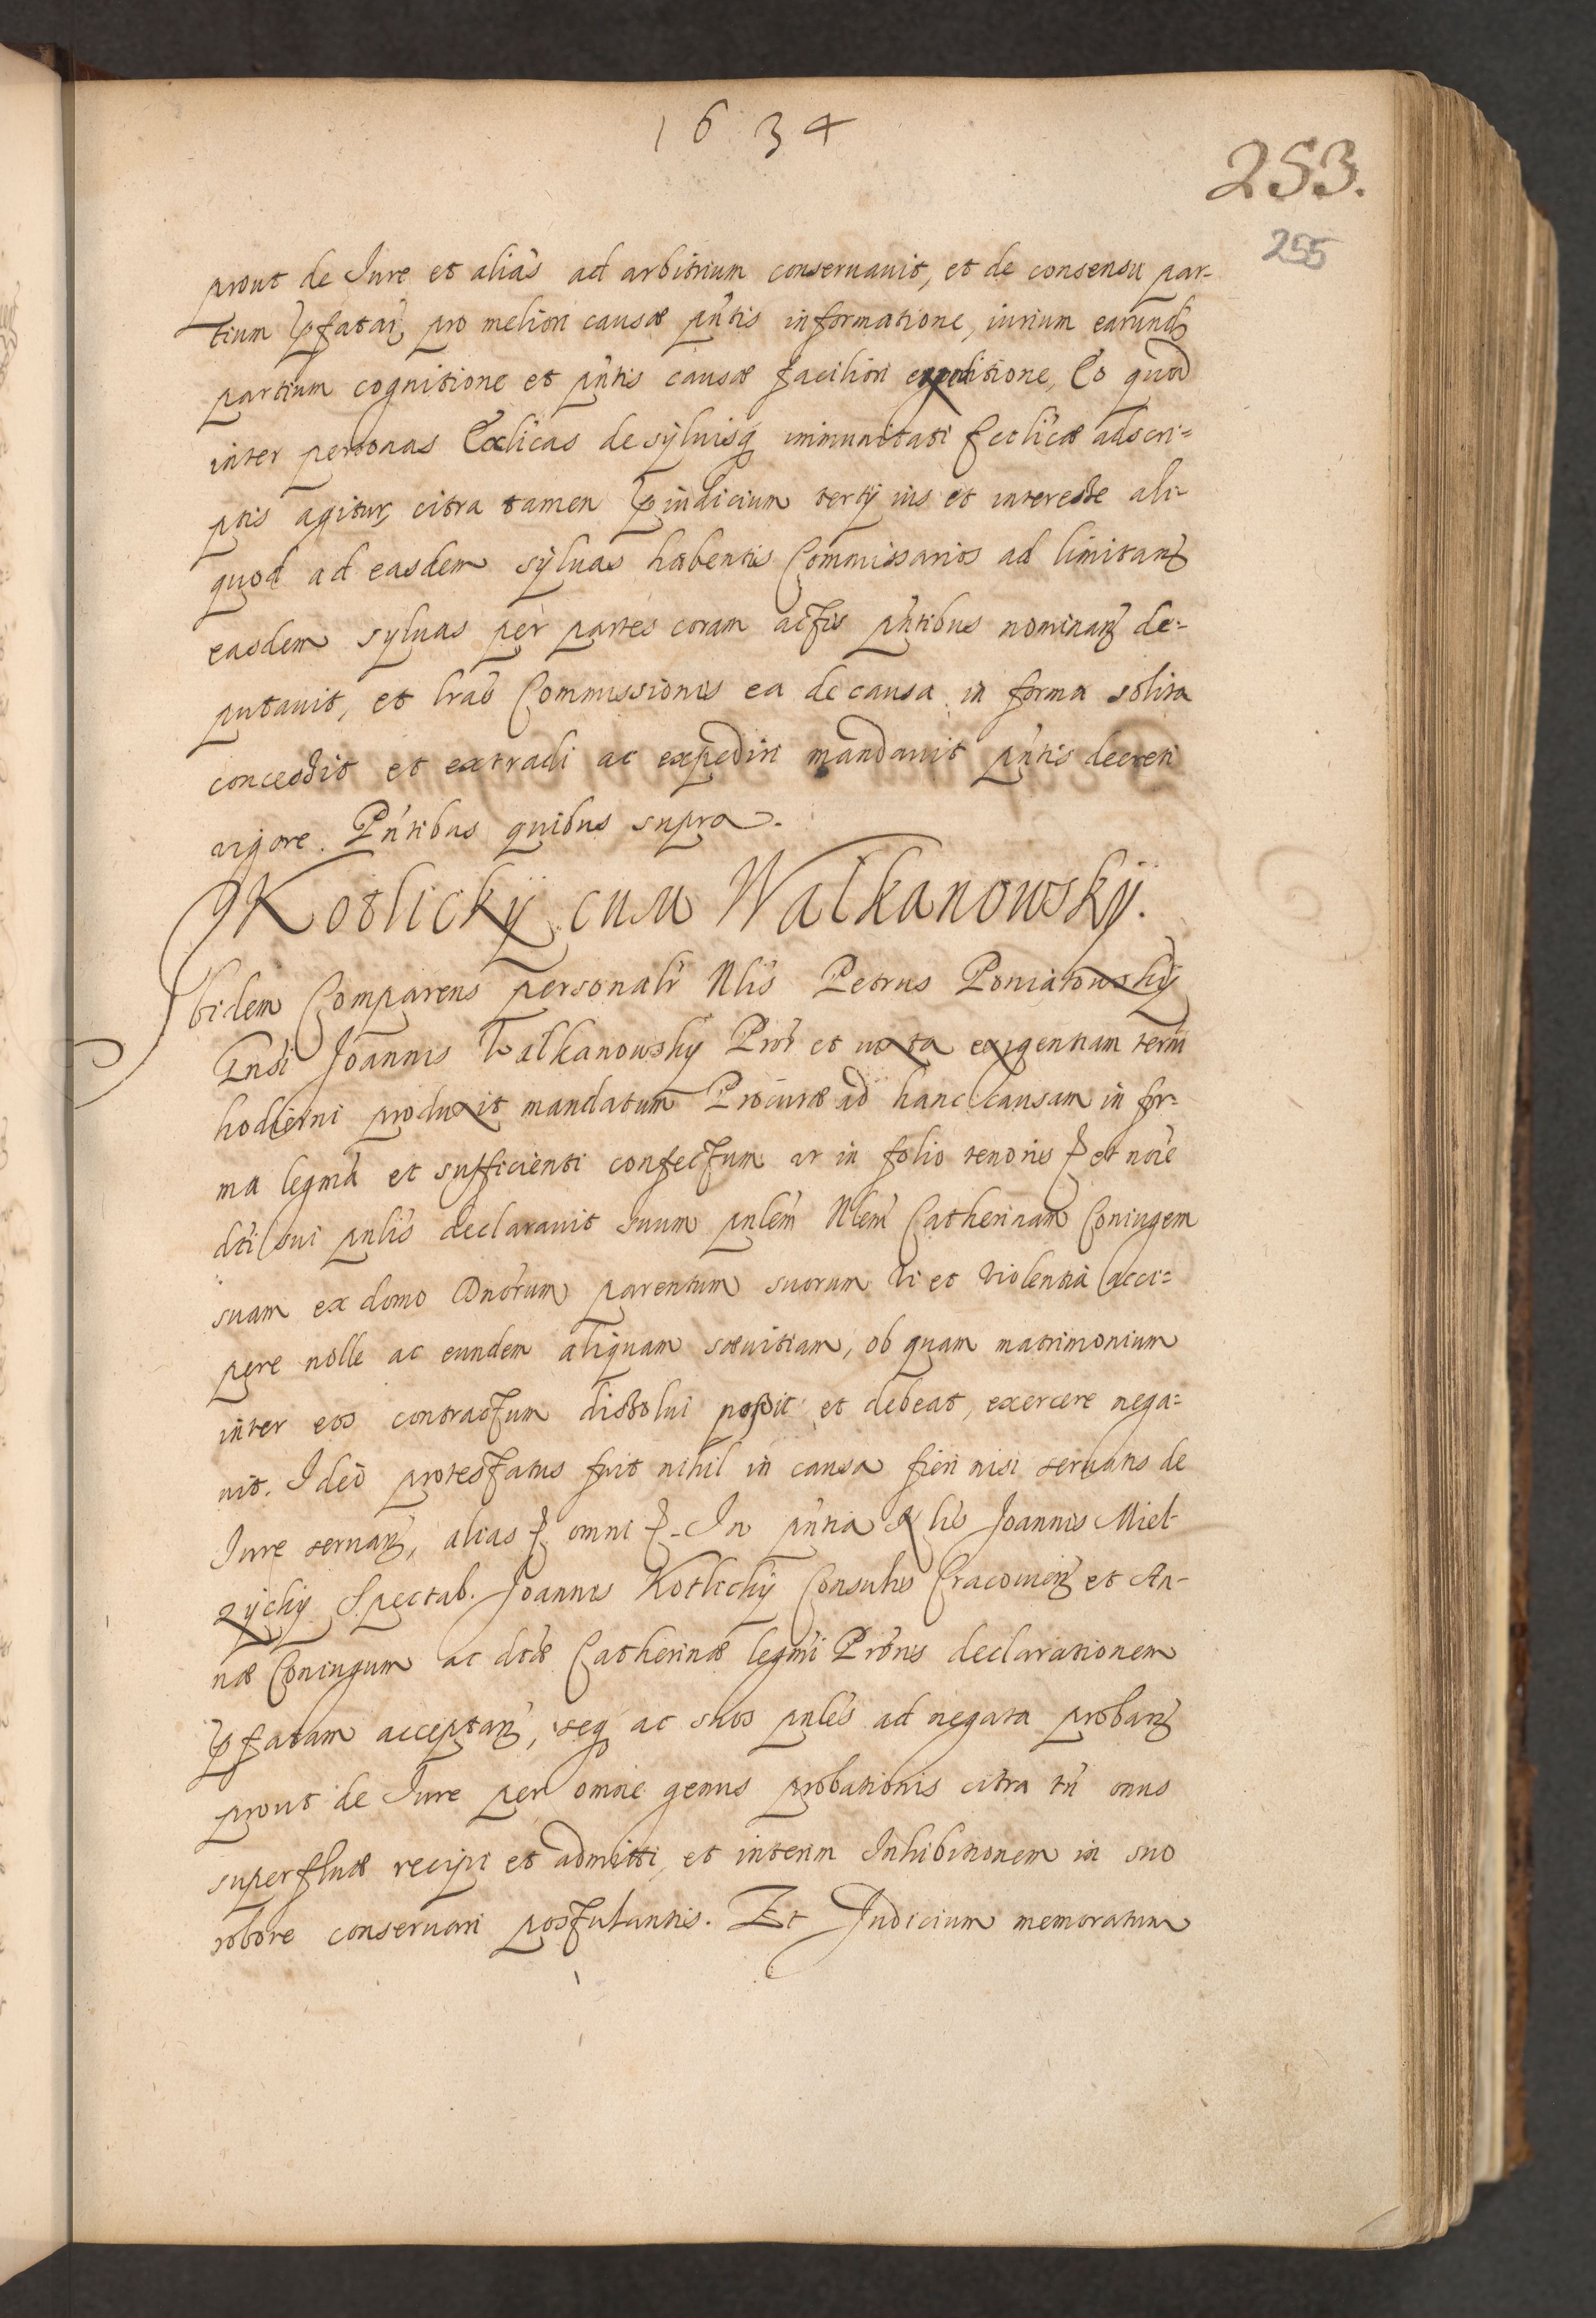 1634
253.
255
prout de Iure et alias ad arbitrium conseruauit, et de consensu par-
tium pfatar, pro meliori causæ pntis informatione, iurium earund
partium cognitione et pntis causæ faciliori expeditione, Eo quod
inter personas Ecclicas de syluisq immunitati Ecclicæ adscri=
ptis agitur, citra tamen piudicium tertij ius et interesse ali-
quod ad easdem syluas habentis Commissarios ad limitan
easdem syluas per partes coram actis pntibus nominan de-
putauit, et lras Commissionis ea de causa in forma solita
concessit et extradi ac expediri mandauit pntis decreti
vigore. Pntibus quibus supra.
Kotlickÿ cum Walkanowskÿ.
Ibidem Comparens personalr Nlis Petrus Poniatowskÿ
Gnsi Joannis Walkanowsky Pror et iuxta exigentiam term
hodierni produxit mandatum Procuræ ad hanc causam in for-
ma legma et sufficienti confectum ut in folio tenoris et noie
dcti sui pnlis declarauit suum pnlem Nlem Catherinam Coniugem
suam ex domo Dnorum parentum suorum vi et violentia acci=
pere nolle ac eundem aliquam sæuitiam, ob quam matrimonium
inter eos contractum dissolui possit et debeat, exercere nega=
uit. Ideo protestatus fuit nihil in causa fieri nisi seruatis de
Iure seruan, alias omni In pntia Nlis Joannis Miel
zijcky Spectab. Joannis Kotlicky Consulis Cracouien et An-
næ Coniugum ac dctæ Catherinæ legmi Proris declarationem
pfatam acceptan, seq ac suos pnles ad negata proban
prout de Iure per omne genus probationis citra tn onus
superfluæ recipi et admitti, et interim Inhibitionem in suo
robore conseruari postulantis. Et Judicium memoratum